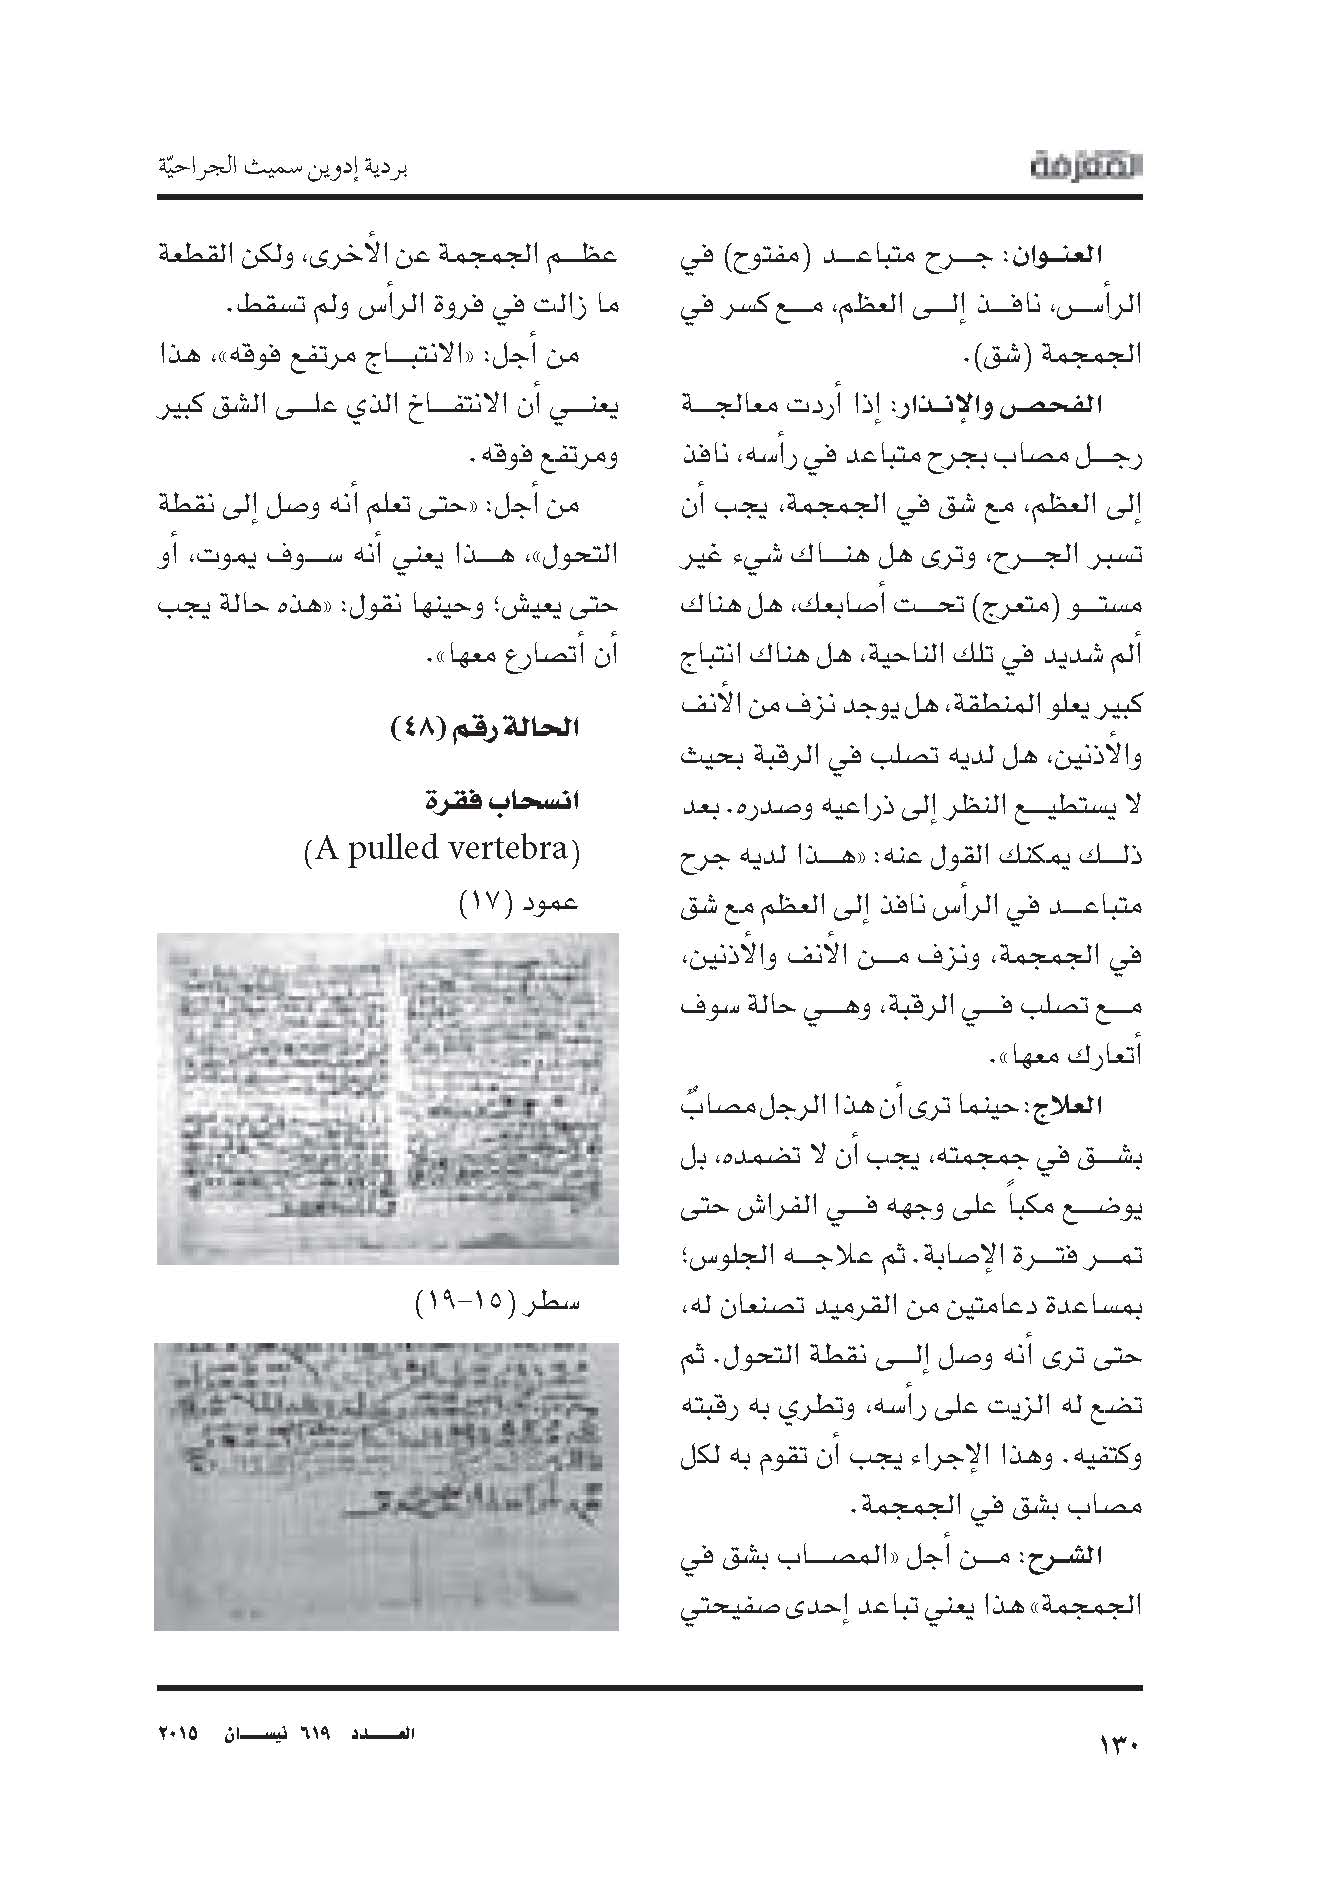 المعرفة
بردية إدوين سميث الجراحيّة
العنوان: جرح متباعد (مفتوح) في
الرأس، نافذ إلى العظم، مع كسر في
الجمجمة (شق).
الفحص والإنذار: إذا أردت معالجة
رجل مصاب بجرح متباعد في رأسه، نافذ
إلى العظم، مع شق في الجمجمة، يجب أن
تسبر الجرح، وترى هل هناك شيء غير
مستو (متعرج) تحت أصابعك، هل هناك
ألم شديد في تلك الناحية، هل هناك انتباج
كبير يعلو المنطقة، هل يوجد نزف من الأنف
والأذنين، هل لديه تصلب في الرقبة بحيث
لا يستطيع النظر إلى ذراعيه وصدره. بعد
ذلك يمكنك القول عنه: «هذا لديه جرح
متباعد في الرأس نافذ إلى العظم مع شق
في الجمجمة، ونزف من الأنف والأذنين،
مع تصلب في الرقبة، وهي حالة سوف
أتعارك معها».
العلاج: حينما ترى أن هذا الرجل مصابٌ
بشق في جمجمته، يجب أن لا تضمده، بل
يوضع مكباً على وجهه في الفراش حتى
تمر فترة الإصابة. ثم علاجه الجلوس؛
بمساعدة دعامتين من القرميد تصنعان له،
حتى ترى أنه وصل إلى نقطة التحول. ثم
تضع له الزيت على رأسه، وتطري به رقبته
وكتفيه. وهذا الإجراء يجب أن تقوم به لكل
مصاب بشق في الجمجمة.
الشرح: من أجل «المصاب بشق في
الجمجمة» هذا يعني تباعد إحدى صفيحتي
عظم الجمجمة عن الأخرى، ولكن القطعة
ما زالت في فروة الرأس ولم تسقط.
من أجل: «الانتباج مرتفع فوقه»، هذا
يعني أن الانتفاخ الذي على الشق كبير
ومرتفع فوقه.
من أجل: «حتى تعلم أنه وصل إلى نقطة
التحول»، هذا يعني أنه سوف يموت، أو
حتى يعيش؛ وحينها نقول: «هذه حالة يجب
أن أتصارع معها».
الحالة رقم (٤٨)
انسحاب فقرة
(A pulled vertebra)
عمود (١٧)
سطر (١٥-١٩)
١٣٠
العدد ٦١٩ نيسان ٢٠١٥